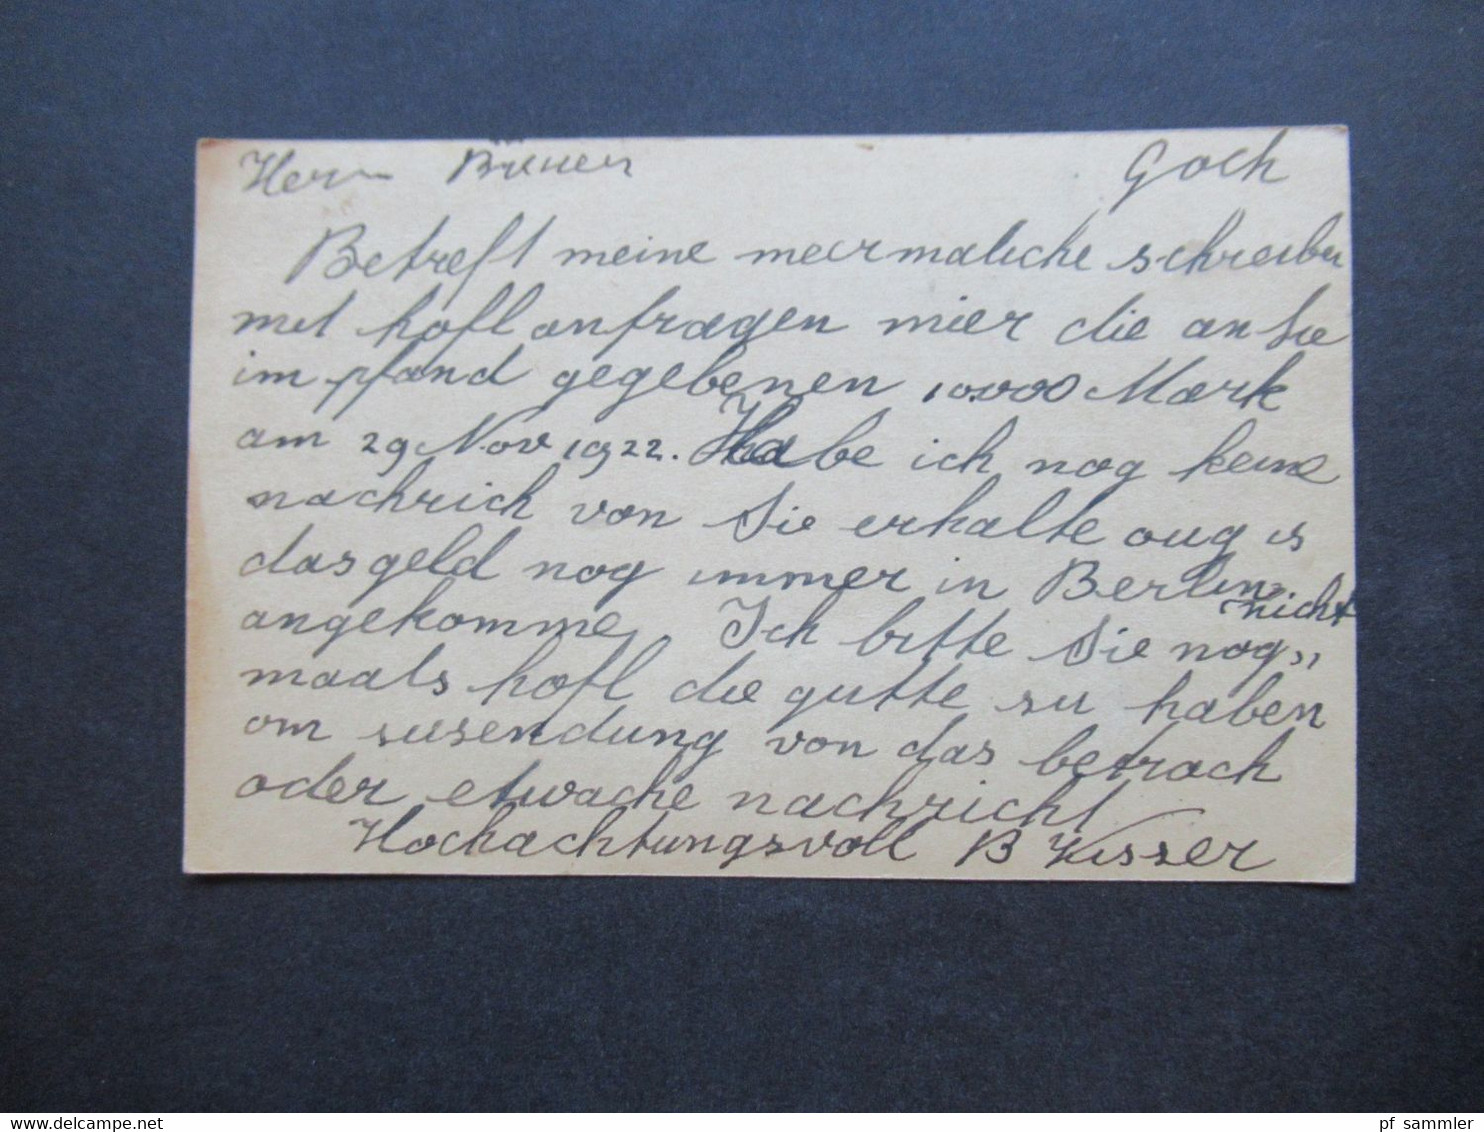 Herrn Breuer Goch
Betreft meine meermaliche schreiben
met hofl anfragen mier die an Sie
im pfand gegebenen 10000 Mark
am 29 Nov 1922. Habe ich nog keine
nachrich von Sie erhalte oug is
das geld nog immer in Berlin
nicht
angekomme, Ich bitte Sie nog,,
maals hofl die gutte zu haben
om zusendung von das betrach
oder etwache nachricht
Hochachtungsvoll B Visser
pf_sammler
www.delcampe.net